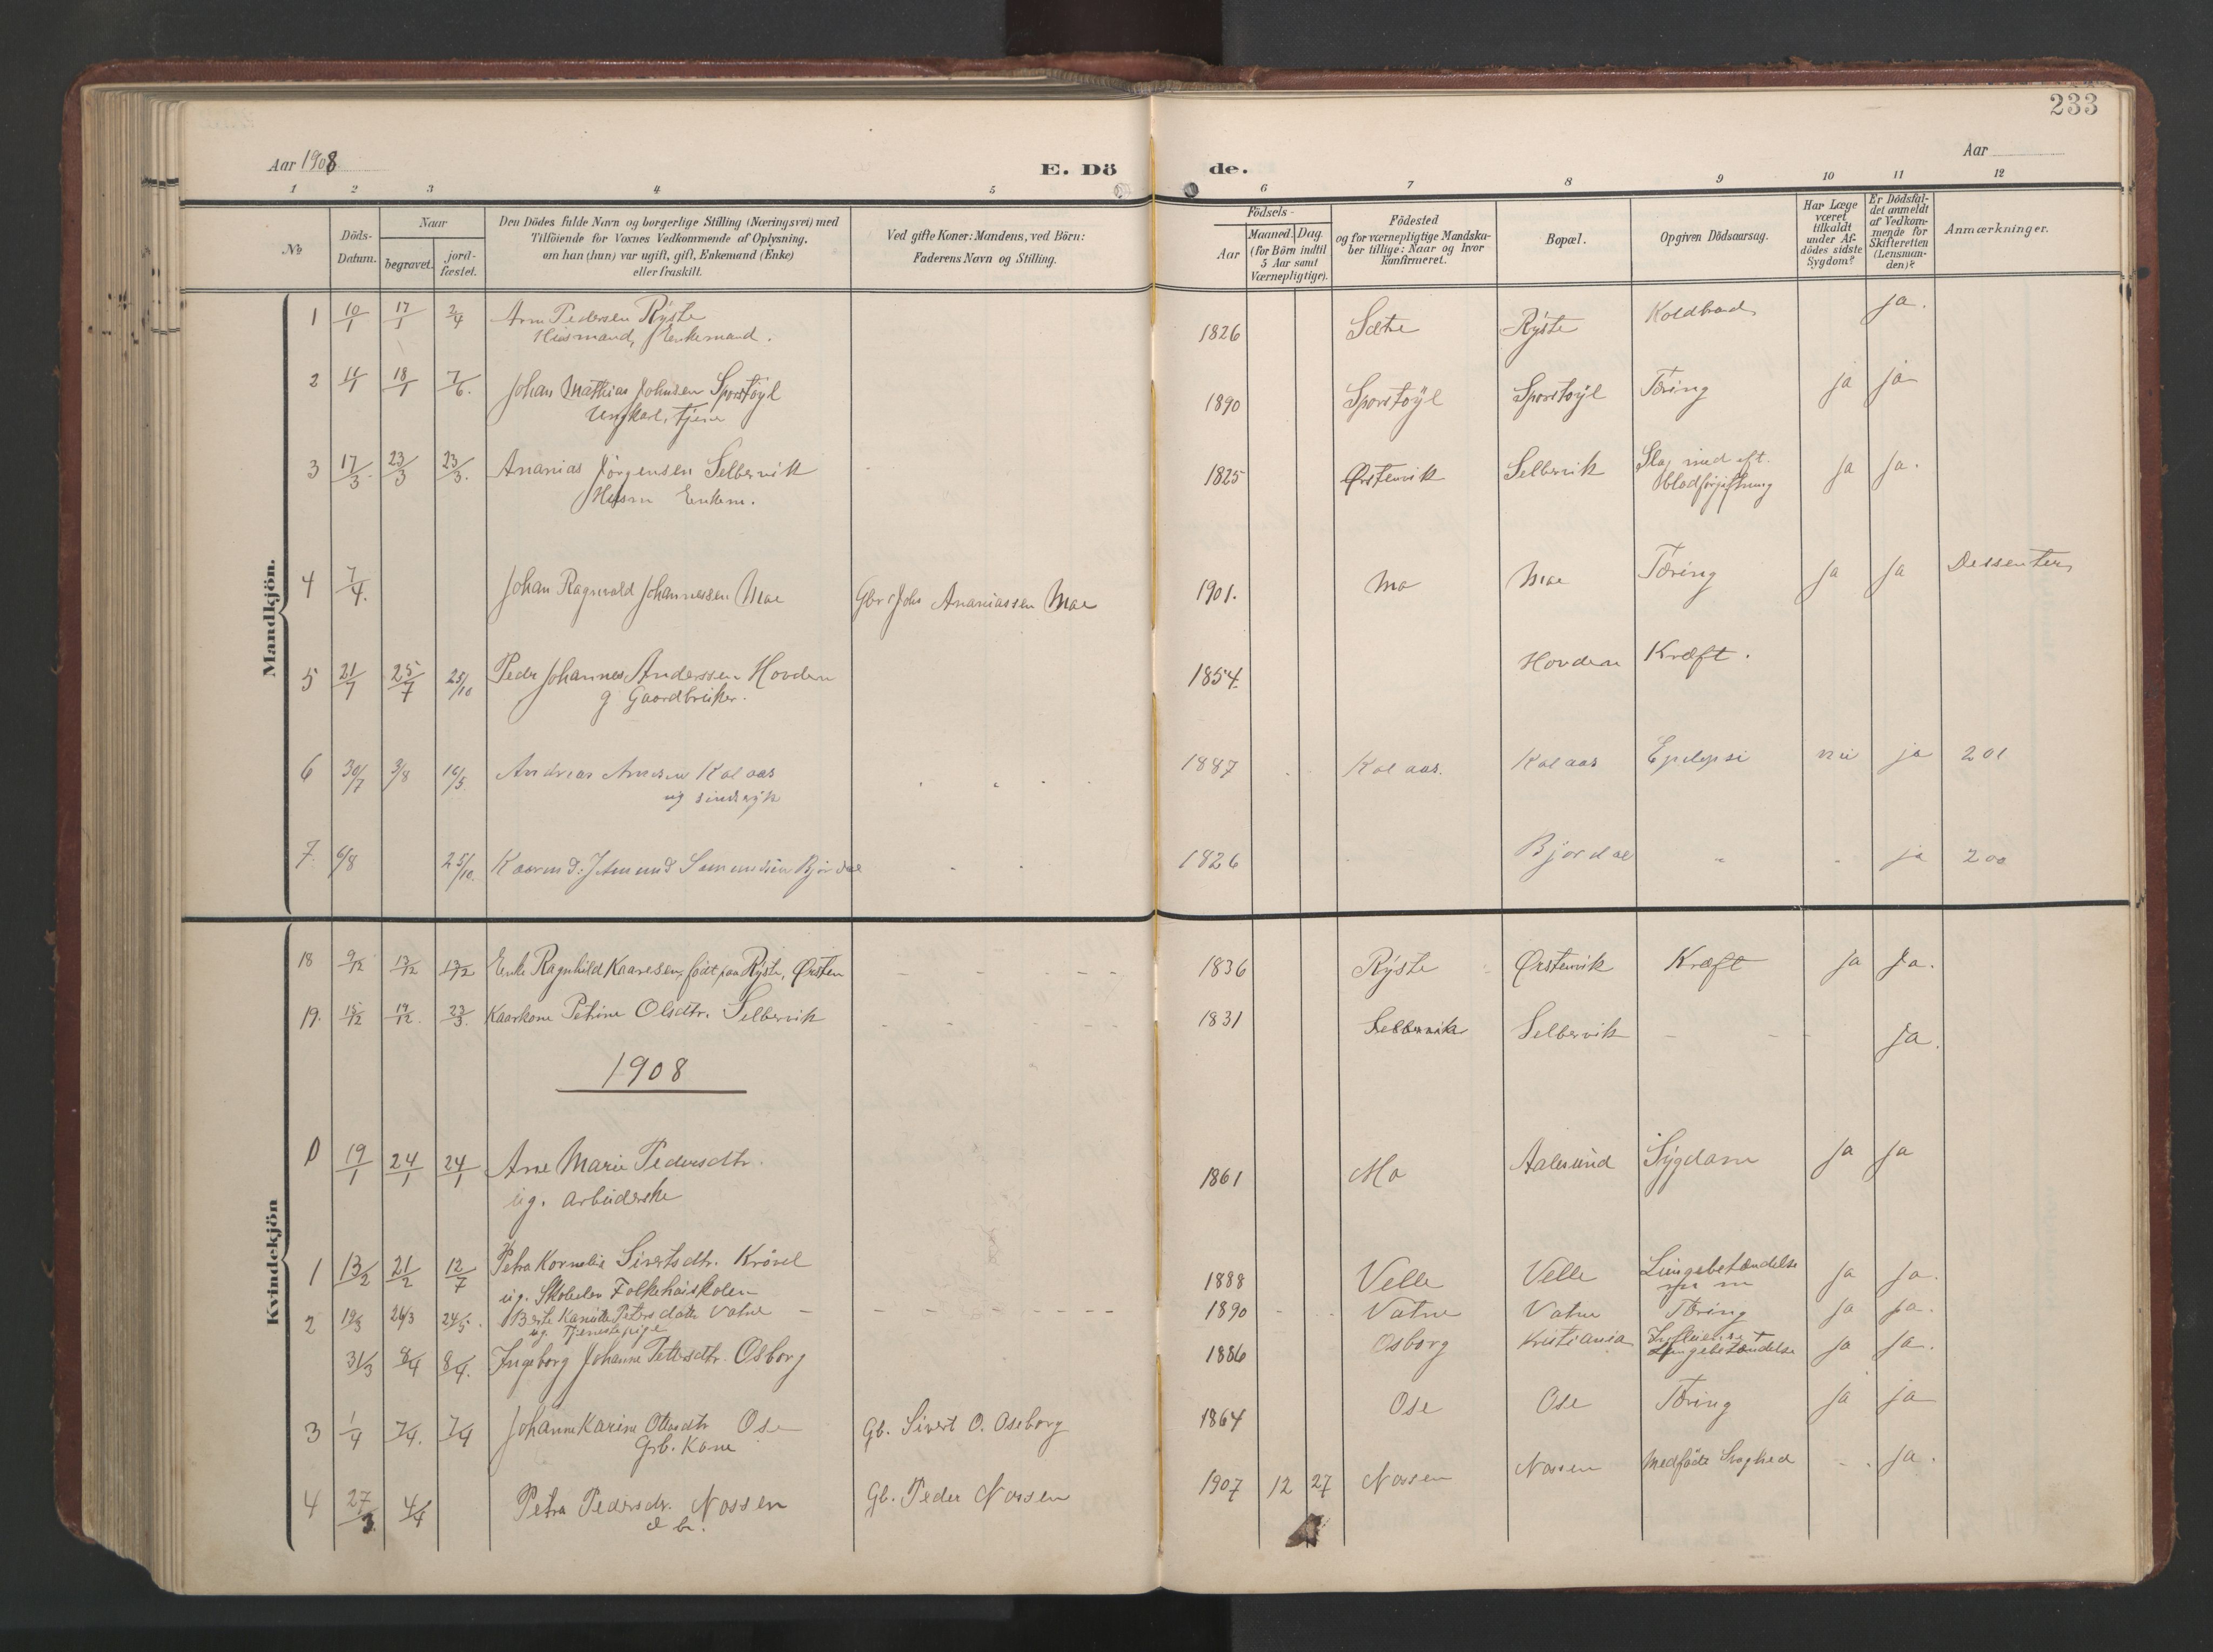 233
Aar 1908
E. Dö
de.
Aar
1 2 3 4 5 6 7 8 9 10 11 12
№
Döds-Datum.
Naar
begravet.
jord-fæstet.
Den Dödes fulde Navn og borgerlige Stilling (Næringsvei) med
Tilföiende for Voxnes Vedkommende af Oplysning,
om han (hun) var ugift, gift, Enkemand (Enke)
eller fraskilt.
Ved gifte Koner: Mandens, ved Börn:
Faderens Navn og Stilling.
Födsels-
Aar
Maaned. Dag.
(for Börn indtil
5 Aar samt
Værnepligtige).
Födested
og for værnepligtige Mandska-
ber tillige: Naar og hvor
konfirmeret.
Bopæl.
Opgiven Dödsaarsag.
Har Læge
været
tilkaldt
under Af-
dödes sidste
Sygdom?
Er Dödsfal-
det anmeldt
af Vedkom-
mende for
Skifteretten
(Lensman-
den)?
Anmærkninger.
Mandkjön.
1 10/1 17/1 2/4 Arn Pedersen Rÿste 1826 Sætre Rÿste Koldbrad ja.
Husmand, Enkemand.
2 11/1 18/1 7/6. Johan Mathias Johnsen Sporstøÿl 1890 Sporstøÿl Sporstøÿl Tæring ja ja
Ungkarl, tjener
3 17/3. 23/3 23/3. Ananias Jörgensen Selbervik 1825 Ørstenvik Selbervik Slag med eft. ja ja.
Husm Enkem. blodforgiftning
4 7/4. Johan Ragnvald Johannessen Moe Gbr Johs Ananiassen Moe 1901. Mo Moe Tæring ja ja Dessenter
5 21/7 25/7 25/10 Peder Johannes Anderssen Hovden 1854. Hovden Kræft.
g Gaardbruker.
6 30/7 3/8 16/5. Andreas Kolaas 1887 Kolaas. Kolaas Epilepsi nei ja 201
ug sindsyk
7. 6/8 25/10. Kaarmd: Bjørdal 1826 Bjørdal ja 200
Kvindekjön
18 9/12 13/12 13/12 Enke Ragnhild Kaaresen, født paa Rÿste, Ørsten 1836 Rÿste Ørstenvik Kræft ja ja.
19. 15/12 19/12. 23/3. Kaarkone Petrine Olsdtr. Selbervik 1831 Selbervik Selbervik ja.
1908
19/1 24/1 24/1 Ane Marie Pedersdtr. 1861 Mo Aalesund Sÿgdom ja ja
ug. arbeiderske
1 13/2 21/2 12/7 Petra Kornelie Sivertsdtr. Krövel 1888 Velle Velle Lungebetændelse ja ja.
ug. Folkehøiskolen
2 19/3 26/3 24/5. Berte Petersdatter Vatne 1890 Vatne Vatne Tæring ja ja.
ug. Tjenestepige
31/3 8/4 8/4. Ingeborg Johanne Pettersdtr. Osborg 1886 Osborg Kristiania Lungebetændelse ja ja.
3 1/4 7/4. 7/4 Johanne Karine Ottarsdtr Ose Gb. Sivert O. Oseborg 1864 Ose Ose Tæring ja ja
Grb. Kone
4 27/3. 4/4 Petra Pedersdr. Nossen Gb. Peder Nossen 1907 12 27 Nossen Nossen Medfödt Svaghed ja.